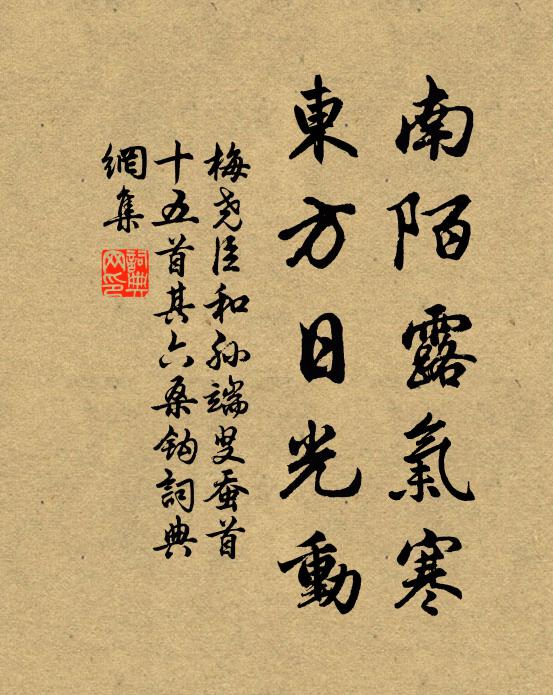 南陌露氣寒
東方日光動
梅堯臣和孙端叟蚕首
十五首其六桑鈎詞典
網集
詞典
网印